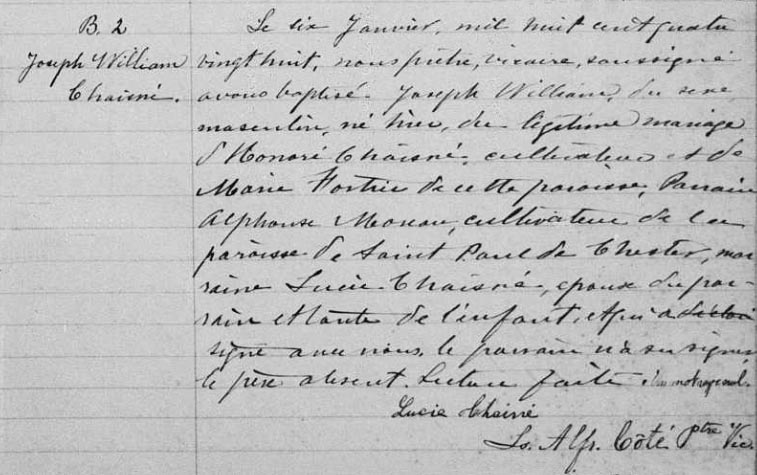 B. 2
Joseph William
Chaisné.
Le six Janvier, mil huit cent quatre
vingt huit, nous prêtre, vicaire, soussigné
avons baptisé Joseph William, du sexe
masculin, né hier, du légitime mariage
d'Honoré Chaisné, cultivateur et de
Marie Fortier de cette paroisse, Parrain
Alphonse Moreau, cultivateur de la
paroisse de Saint Paul de Chester, mar
raine Lucie Chaisné, épouse du par-
rain et tante de l'enfant, et qui a
signé avec nous, le parrain n'a su signer
le père absent. Lecture faite. Un mot rayé nul.
Lucie Chaisné
Ls. Alfr. Côté ptre Vic.